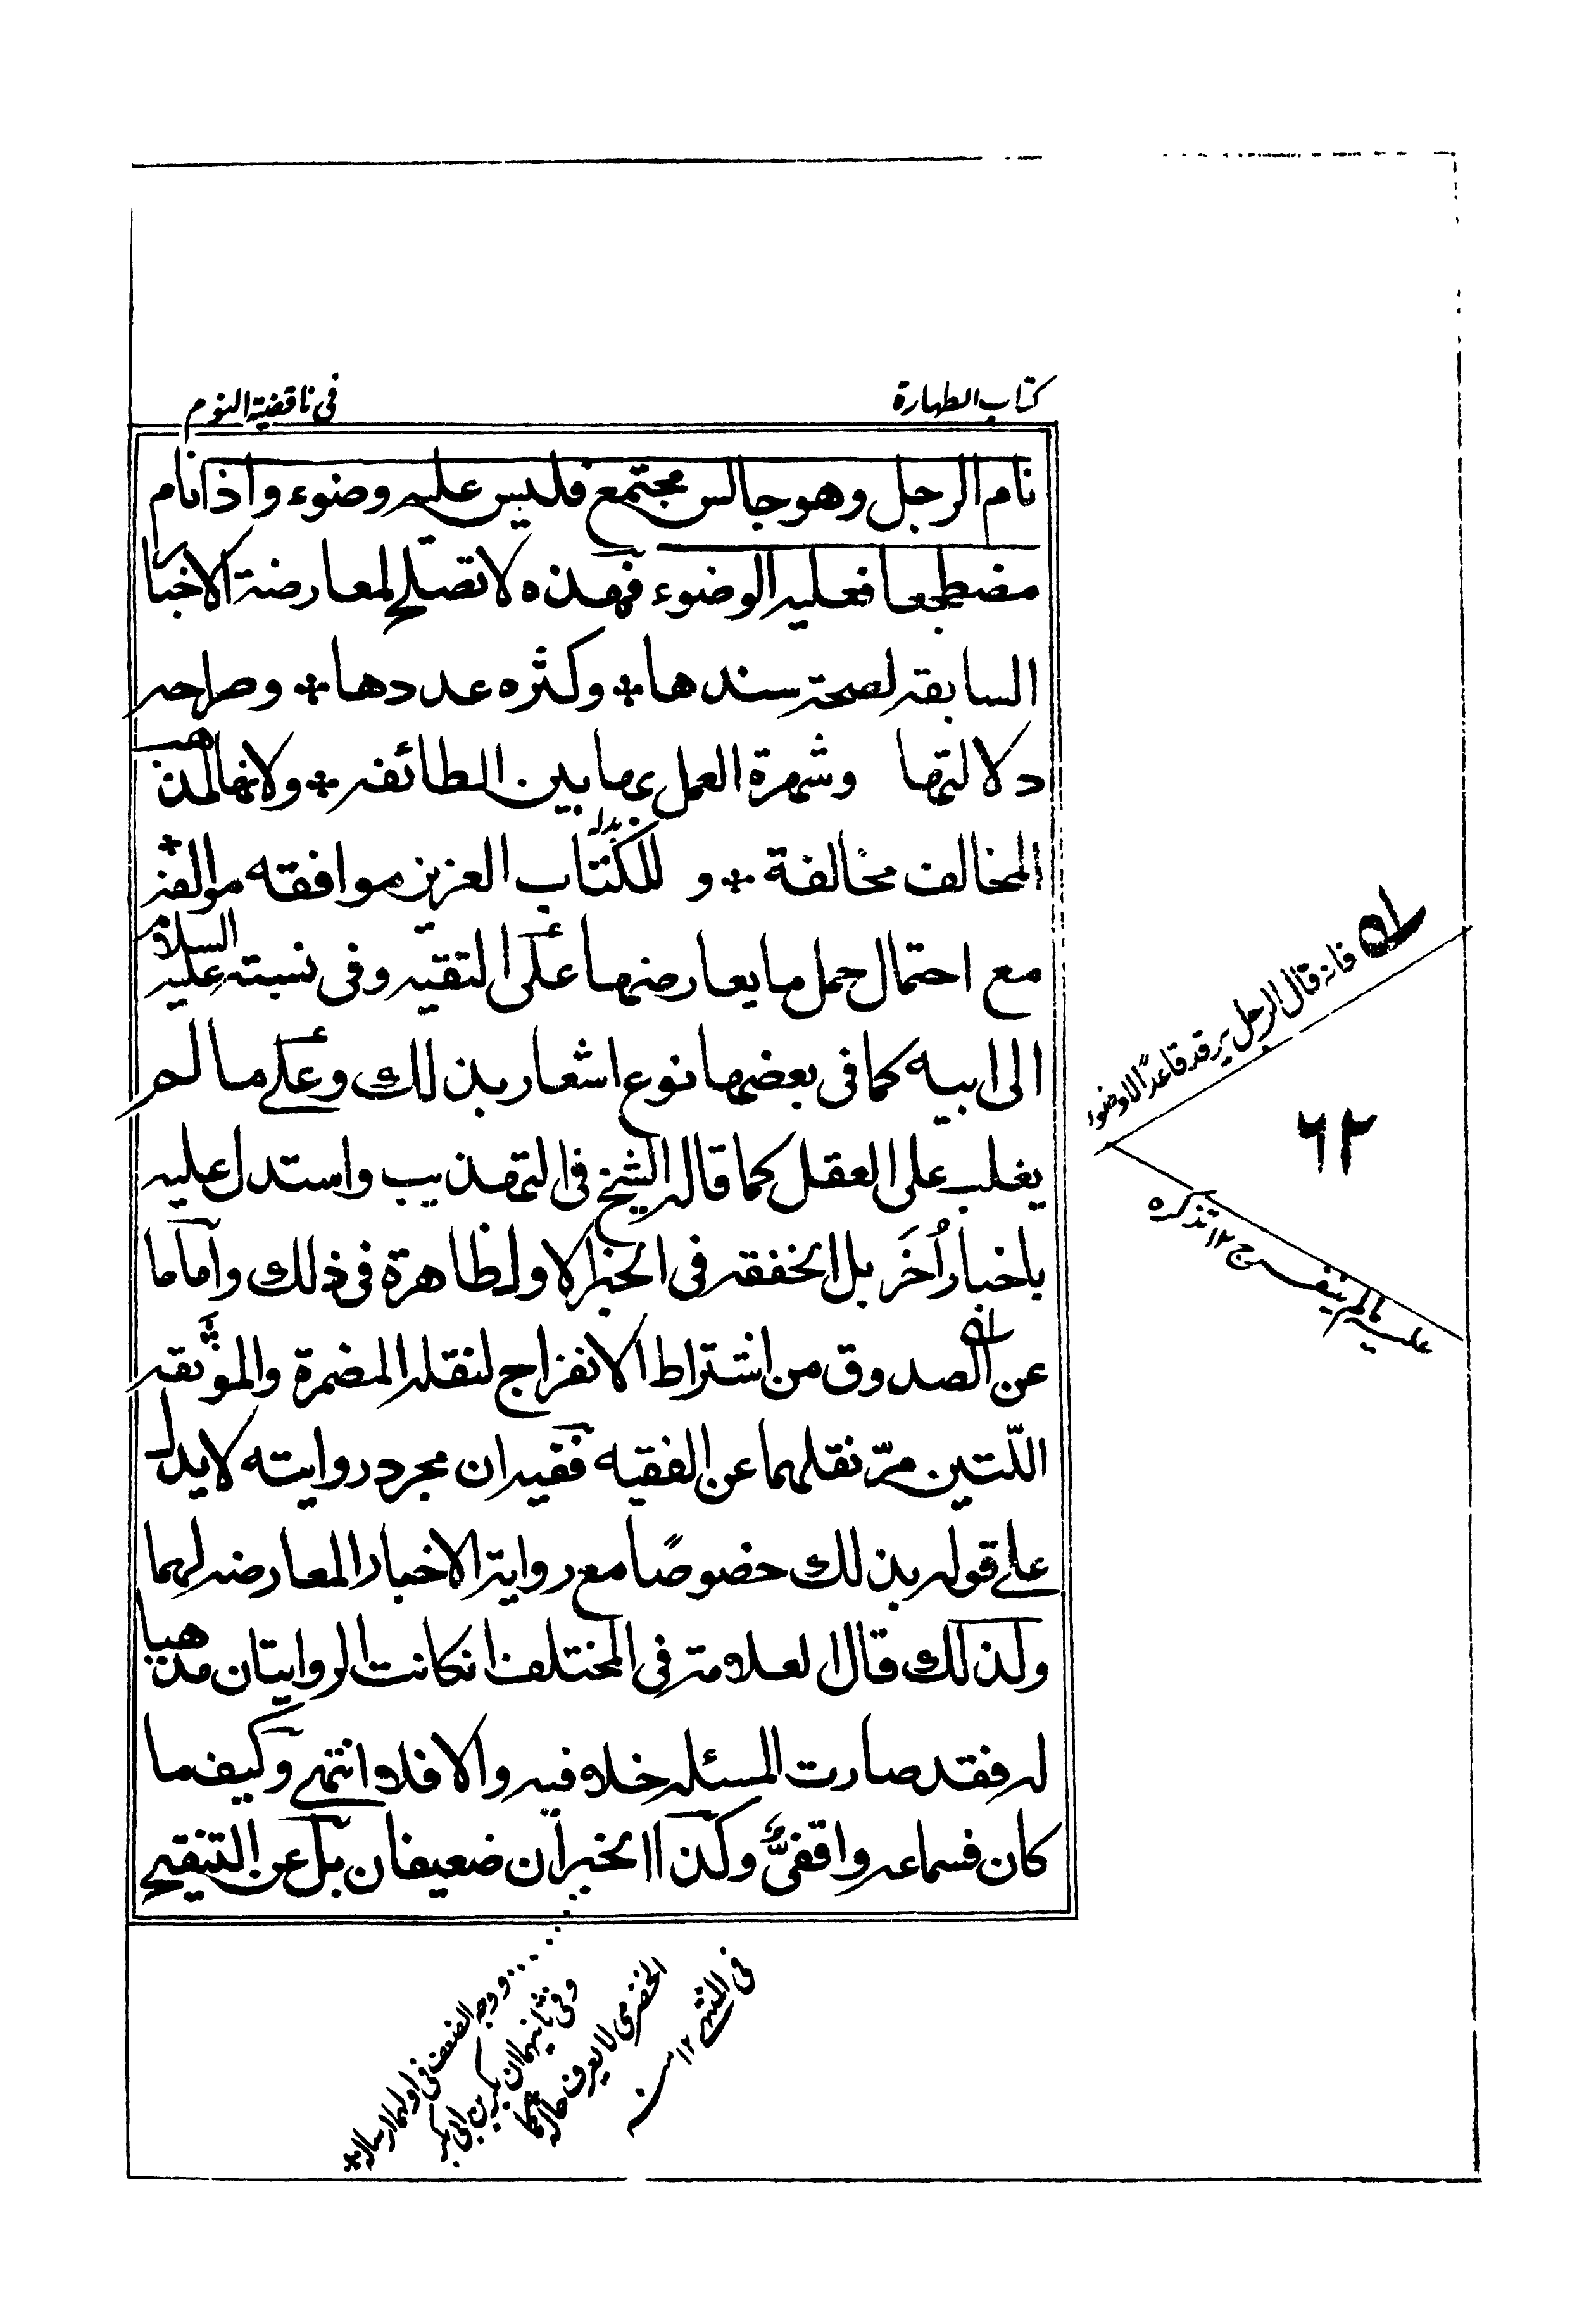 كتاب الطهارة
فى ناقضية النوم
نام الرجل وهو جالس مجتمع فليس عليه وضوء واذا نام
مضطجعا فعليه الوضوء فهذه لا تصلح لمعارضة الاخبار
السابقه لصحة سندها * وكثره عددها * وصراحه
دلالتها وشهرة العمل بها بين الطائفه * ولانها لمذهب
المخالف مخالفة * و للكتاب العزيز موافقه مؤالفة *
مع احتمال حمل ما يعارضها على التقيه وفى نسبته عليه السلام
الى ابيه كما فى بعضها نوع اشعار بذلك وعلى ما لم
يغلب على العقل كما قاله الشيخ فى التهذيب واستدل عليه
باخبار اُخَر بل الخفقه فى الخبر الاول ظاهرة فى ذلك واما ما
عن الصدوق من اشتراط الانفراج لنقله المضمرة والموثقه
اللّتين مرّ نقلهما عن الفقيه ففيه ان مجرد روايته لا يدل
على قوله بذلك خصوصًا مع رواية الاخبار المعارضه لهما
ولذلك قال العلامة فى المختلف ان كانت الروايتان مذهبا
له فقد صارت المسئله خلافيه والا فلا انتهى وكيف ما
كان فسماعه واقفىٌّ وكذا الخبران ضعيفان بل عن التنقيح
فانه قال الرجل يرقد قاعدًا لا وضوء
٦٢
عليه ما لم ينفرج ١٢ تذكره
ووجه الضعف فى اولهما ارساله *
وفى ثانيهما ان بكر بن ابى بكر
الحضرمى لا يعرف حاله كما
فى المنتهى ١٢ منه